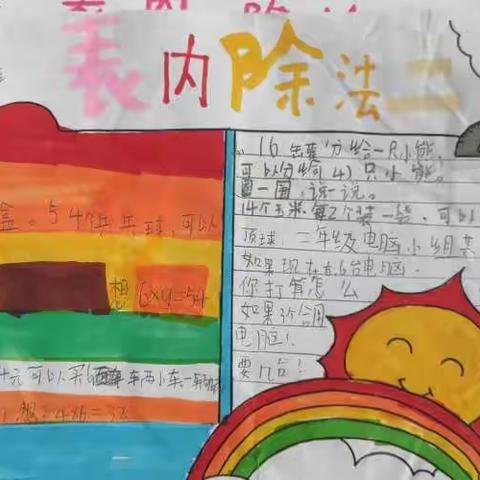 表内除法二
盒。54个乒乓球,可以
想 6×9=54
元可以买 车两小车一
想:4×8=32
16 分给一只小熊,
可以分给(4)只小熊。
圈一圈,说一说。
14个玉米,每2个装一袋,可以
顶球,二年级电脑小组共
如果现在有6台电脑.
你打算怎么
如果3个合用
电脑!
要几台!